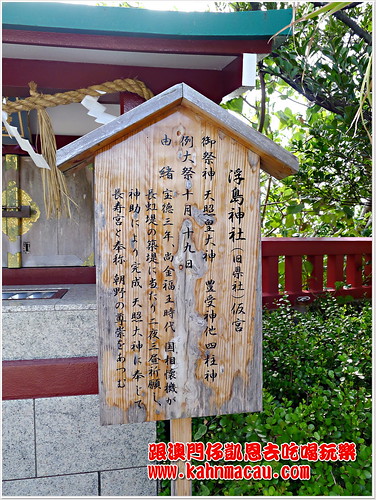 浮島神社(旧県社)仮宮
御祭神 天照皇大神 豊受神他四柱神
例大祭 十月十九日
由緒 宝徳三年、尚金福王時代、国相懐機が
長虹堤の築堤に当たり一夜三昼祈願し
神助により完成 天照大神に奉して
長寿宮と奉称 朝野の尊崇をあつむ
跟澳門仔凱恩去吃喝玩樂
www.kahnmacau.com